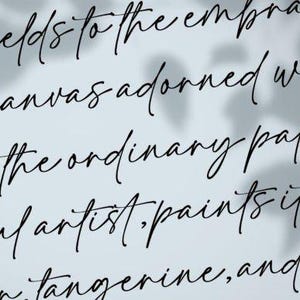 elds to the embra
anvas adorned w
the ordinary pa
ul artist, paints i
n, tangerine, and